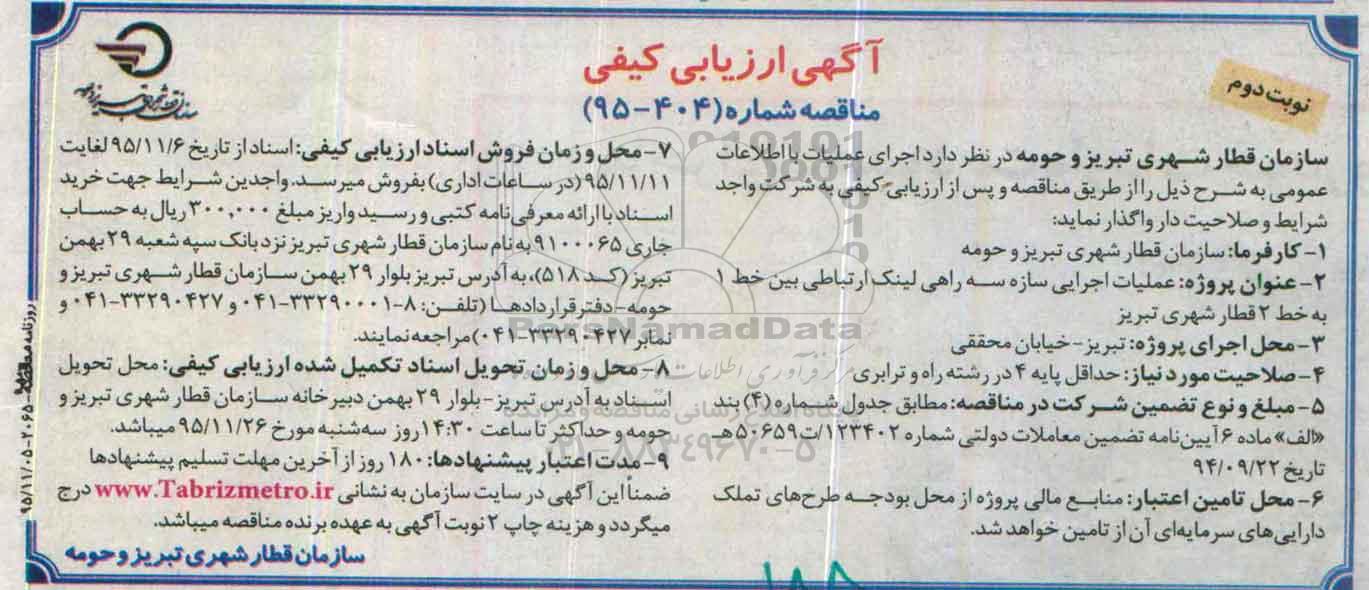 آگهی ارزیابی کیفی
مناقصه شماره (۴۰۴-۹۵)
نوبت دوم
سازمان قطار شهری تبریز و حومه در نظر دارد اجرای عملیات با اطلاعات
عمومی به شرح ذیل را از طریق مناقصه و پس از ارزیابی کیفی به شرکت واجد
شرایط و صلاحیت دار واگذار نماید:
۱- کارفرما: سازمان قطار شهری تبریز و حومه
۲- عنوان پروژه: عملیات اجرایی سازه سه راهی لینک ارتباطی بین خط ۱
به خط ۲ قطار شهری تبریز
۳- محل اجرای پروژه: تبریز-خیابان محققی
۴- صلاحیت مورد نیاز: حداقل پایه ۴ در رشته راه و ترابری
۵- مبلغ و نوع تضمین شرکت در مناقصه: مطابق جدول شماره (۴) بند
«الف» ماده ۶ آیین‌نامه تضمین معاملات دولتی شماره ۱۲۳۴۰۲/ت۵۰۶۵۹هـ
تاریخ ۹۴/۰۹/۲۲
۶- محل تامین اعتبار: منابع مالی پروژه از محل بودجه طرح‌های تملک
دارایی‌های سرمایه‌ای آن از تامین خواهد شد.
۷- محل و زمان فروش اسناد ارزیابی کیفی: اسناد از تاریخ ۹۵/۱۱/۶ لغایت
۹۵/۱۱/۱۱ (در ساعات اداری) بفروش میرسد. واجدین شرایط جهت خرید
اسناد با ارائه معرفی نامه کتبی و رسید واریز مبلغ ۳۰۰,۰۰۰ ریال به حساب
جاری ۹۱۰۰۰۶۵ به نام سازمان قطار شهری تبریز نزد بانک سپه شعبه ۲۹ بهمن
تبریز (کد ۵۱۸)، به آدرس تبریز بلوار ۲۹ بهمن سازمان قطار شهری تبریز و
حومه-دفتر قراردادها (تلفن: ۸-۳۳۲۹۰۰۰۱-۰۴۱ و ۳۳۲۹۰۴۲۷-۰۴۱ و
نمابر ۳۳۲۹۰۴۲۷-۰۴۱) مراجعه نمایند.
۸- محل و زمان تحویل اسناد تکمیل شده ارزیابی کیفی: محل تحویل
اسناد به آدرس تبریز-بلوار ۲۹ بهمن دبیرخانه سازمان قطار شهری تبریز و
حومه و حداکثر تا ساعت ۱۴:۳۰ روز سه‌شنبه مورخ ۹۵/۱۱/۲۶ میباشد.
۹- مدت اعتبار پیشنهادها: ۱۸۰ روز از آخرین مهلت تسلیم پیشنهادها
ضمناً این آگهی در سایت سازمان به نشانی www.Tabrizmetro.ir درج
میگردد و هزینه چاپ ۲ نوبت آگهی به عهده برنده مناقصه میباشد.
سازمان قطار شهری تبریز و حومه
روزنامه مناقصه ۲۰۶۵-۹۵/۱۱/۰۵
ParsNamadData
۰۲۱-۸۸۳۴۹۶۷۰-۵
۱۸۵